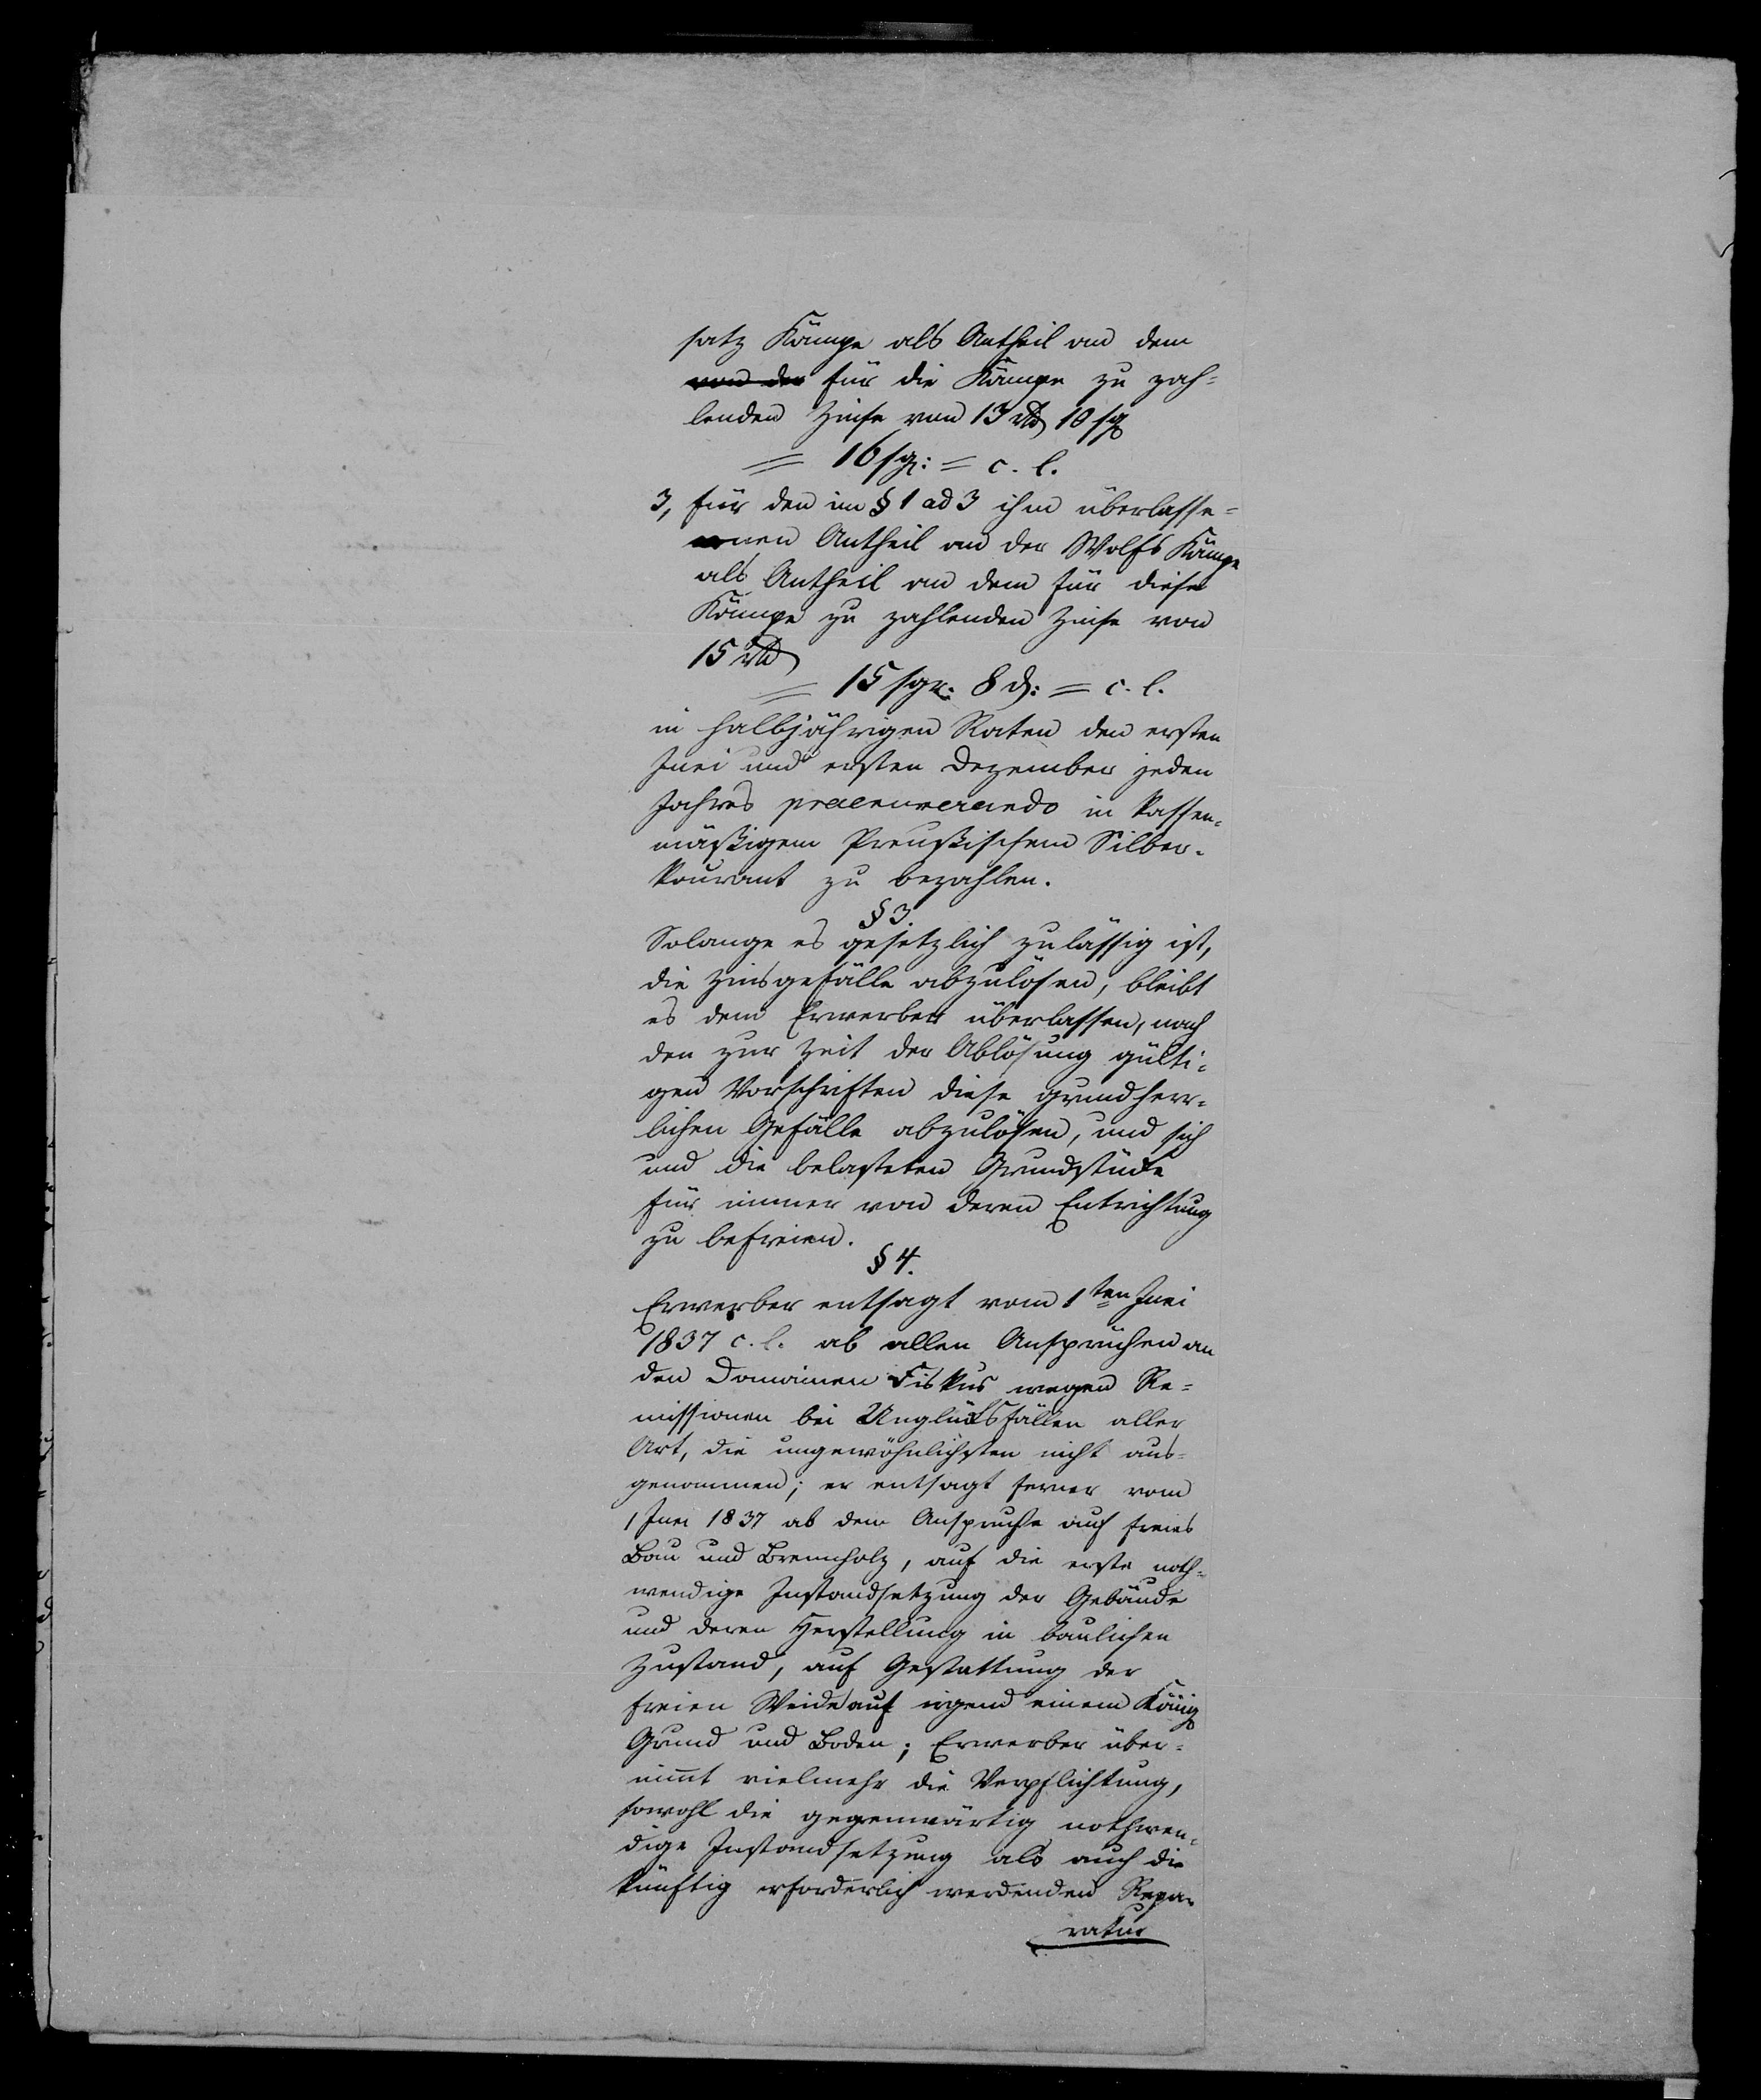 satz Kämpe als Antheil an dem
von der für die Kämpe zu zah=
lenden Zinse von 13 rtl 10 sg
= 16 sg: = c. l.
3, für den im § 1 ad 3 ihm überlasse=
nen Antheil an der Wolfs Kämpe
als Antheil an dem für diese
Kämpe zu zahlenden Zinse von
15 rtl
= 15 sgr: 8 d: = c. l.
in halbjährigen Raten den ersten
Juni und ersten Dezember jeden
Jahres praenumerando in kassen=
mäßigem Preußischem Silber=
kourant zu bezahlen.
§ 3.
Solange es gesetzlich zulässig ist,
die Zinsgefälle abzulösen, bleibt
es dem Erwerber überlassen, nach
den zur Zeit der Ablösung gülti=
gen Vorschriften diese grundherr=
lichen Gefälle abzulösen, und sich
und die belasteten Grundstücke
für immer von deren Entrichtung
zu befreien.
§ 4.
Erwerber entsagt vom 1ten Juni
1837 c. l. ab allen Ansprüchen an
den Domainen Fiskus wegen Re=
missionen bei Unglücksfällen aller
Art, die ungewöhnlichsten nicht aus=
genommen; er entsagt ferner vom
1 Juni 1837 ab dem Anspruche auf freies
Bau und Brennholz, auf die erste noth=
wendige Instandsetzung der Gebäude
und deren Herstellung in baulichen
Zustand, auf Gestattung der
freien Weide auf irgend einem König
Grund und Boden; Erwerber über=
nimt vielmehr die Verpflichtung,
sowohl die gegenwärtig nothwen=
dige Instandsetzung als auch die
künftig erforderlich werdenden Repa=
ratur